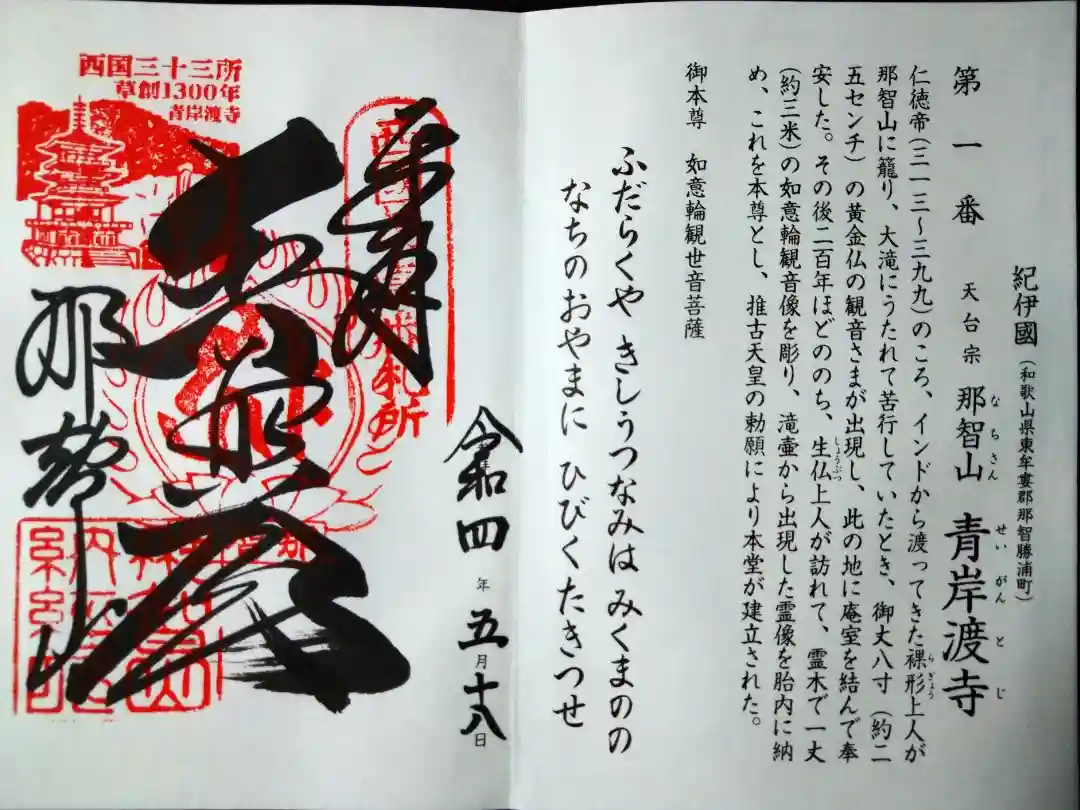 紀伊國(和歌山県東牟婁郡那智勝浦町)
第一番 天台宗 那智山 青岸渡寺
なちさん せいがんとじ
仁徳帝(三一三〜三九九)のころ、インドから渡ってきた裸形上人が
らぎょう
那智山に籠り、大滝にうたれて苦行していたとき、御丈八寸(約二
五センチ)の黄金仏の観音さまが出現し、此の地に庵室を結んで奉
安した。その後二百年ほどののち、生仏上人が訪れて、霊木で一丈
しょうぶつ
(約三米)の如意輪観音像を彫り、滝壷から出現した霊像を胎内に納
め、これを本尊とし、推古天皇の勅願により本堂が建立された。
御本尊 如意輪観世音菩薩
ふだらくや きしうつなみは みくまのの
なちのおやまに ひびくたきつせ
令和四年五月十八日
奉拝
西国三十三所
草創1300年
青岸渡寺
那智山